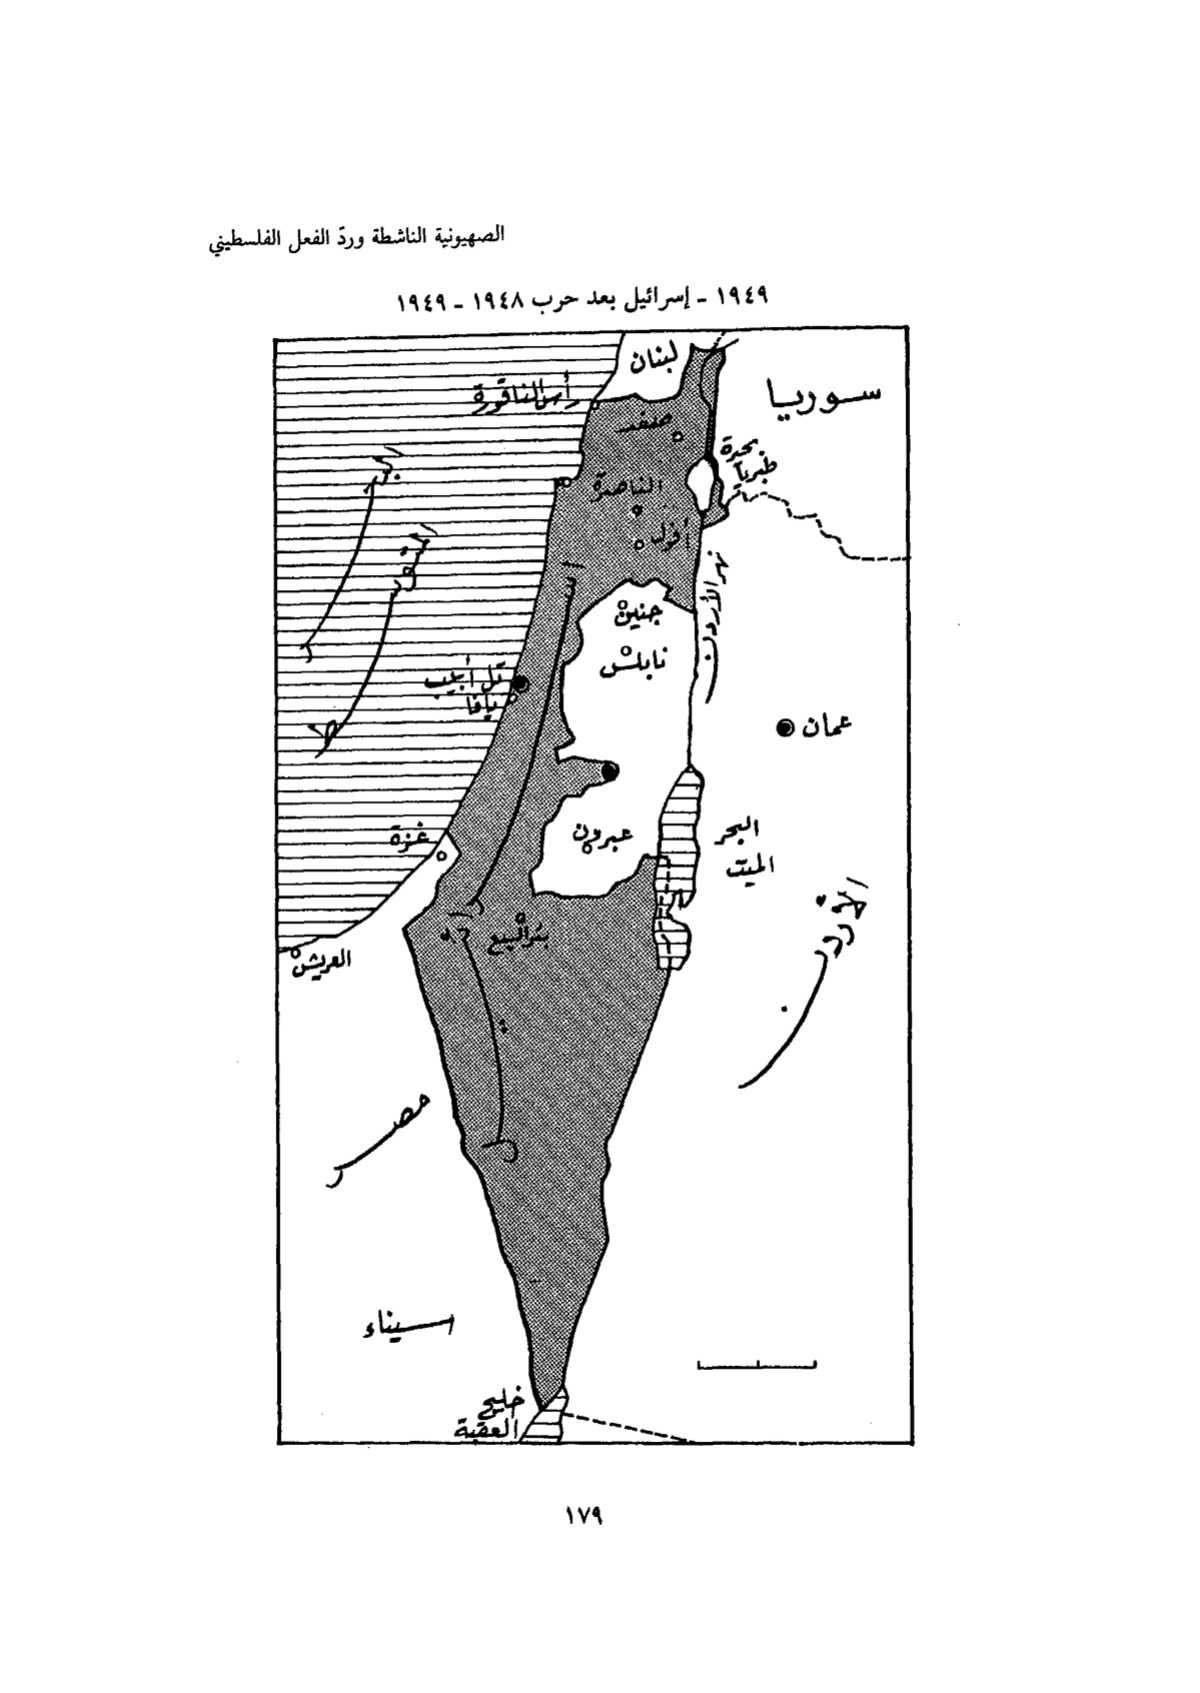 الصهيونية الناشطة وردّ الفعل الفلسطيني
١٩٤٩ ـ إسرائيل بعد حرب ١٩٤٨ ـ ١٩٤٩
لبنان
سوريا
رأس الناقورة
صفد
بحيرة
طبريا
الناصرة
البحر
المتوسط
نهر الأردن
جنين
نابلس
تل أبيب
يافا
عمان
غزة
عبرون
البحر
الميت
الأردن
بئر السبع
العريش
إسرائيل
مصر
سيناء
خليج
العقبة
١٧٩